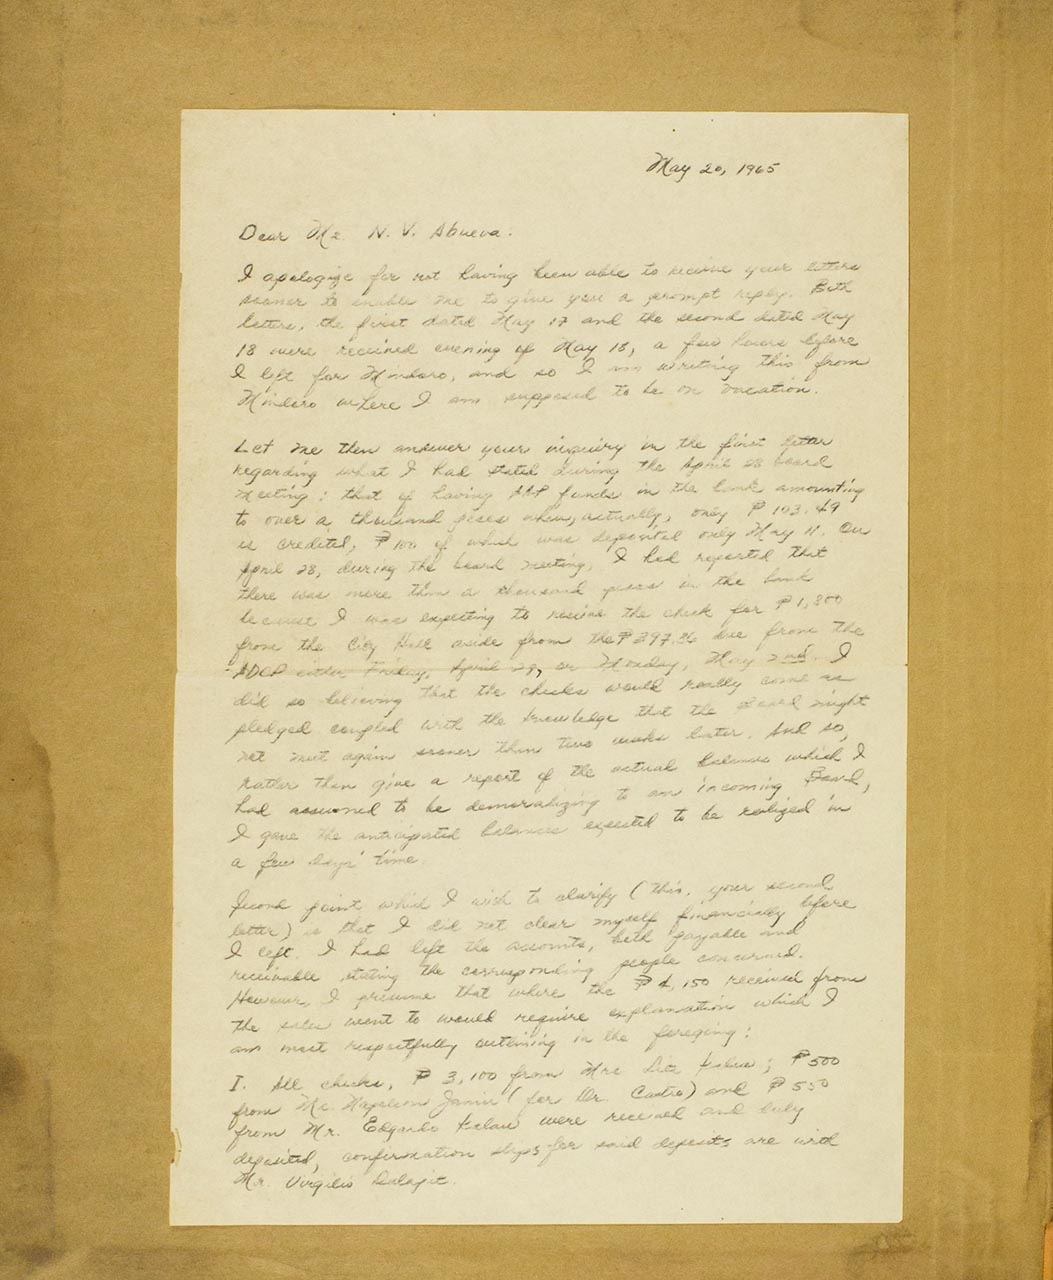 May 20, 1965
Dear Mr. N. V. Abueva.
I apologize for not having been able to receive your letters
sooner to enable me to give you a prompt reply. Both
letters, the first dated May 17 and the second dated May
18 were received evening of May 18, a few hours before
I left for Mindoro, and so I am writing this from
Mindoro where I am supposed to be on vacation.
Let me then answer your inquiry in the first letter
regarding what I had stated during the April 28 board
meeting: that of having AAP funds in the bank amounting
to over a thousand pesos when, actually, only ₱ 103.49
is credited, ₱ 100 of which was deposited only May 11. On
April 28, during the board meeting, I had reported that
there was more than a thousand pesos in the bank
because I was expecting to receive the check for ₱ 1,300
from the City Hall aside from the ₱ 297.26 due from the
either Friday, April 29, or Monday, May 2nd. I
did so believing that the checks would really come as
pledged coupled with the knowledge that the Board might
not meet again sooner than two weeks later. And so,
rather than give a report of the actual balance which I
had assumed to be demoralizing to an incoming Board,
I gave the anticipated balances expected to be realized in
a few days' time.
Second point which I wish to clarify (this, your second
letter) is that I did not clear myself financially before
I left. I had left the accounts, both payable and
receivable stating the corresponding people concerned.
However, I presume that where the ₱ 4,150 received from
the sales went to would require explanation which I
am most respectfully outlining in the foregoing:
I. All checks, ₱ 3,100 from Mrs ; ₱ 500
from Mr. Napoleon (for Dr. Castro) and ₱ 550
from Mr. Edgardo Kalaw were received and duly
deposited, confirmation slips for said deposits are with
Mr. Virgilio